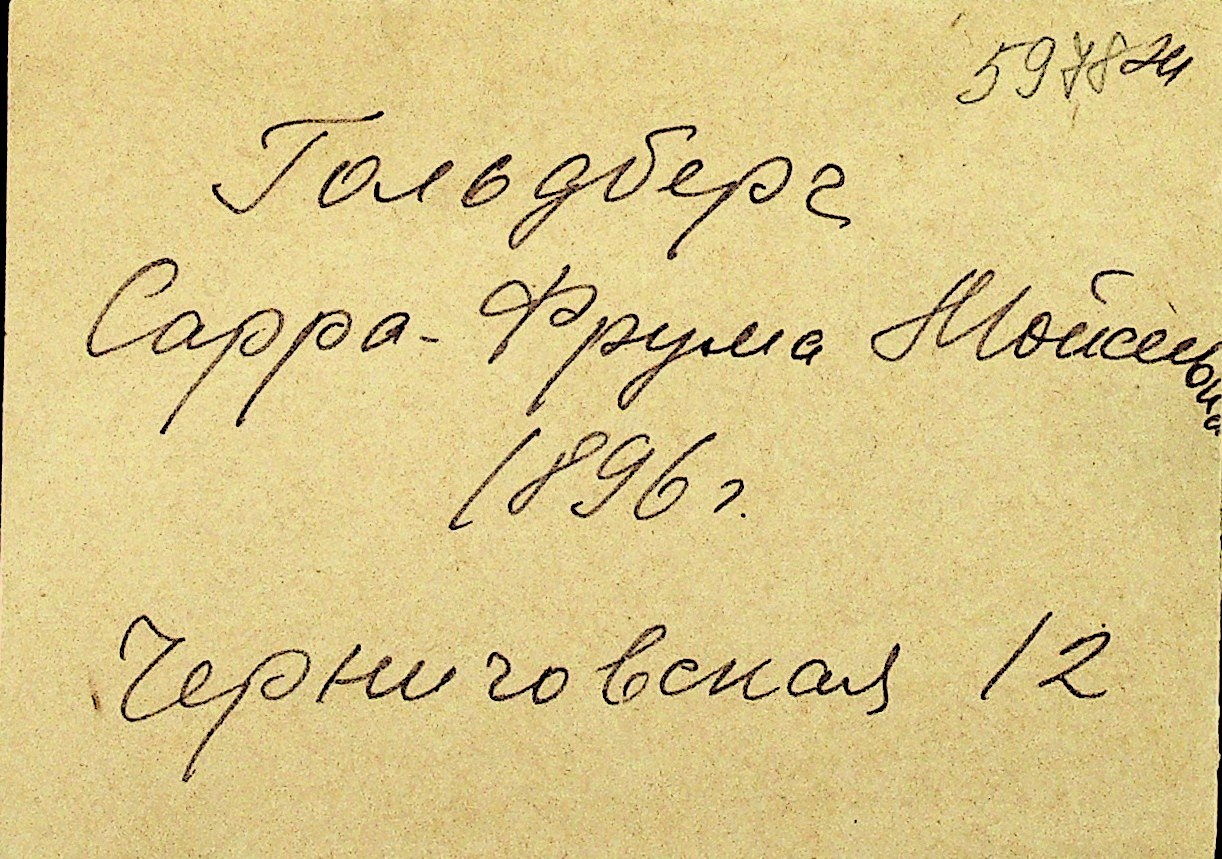 5978ж
Гольдберг
Сарра-Фрума Мойсеевна
1896 г.
Черниговская 12